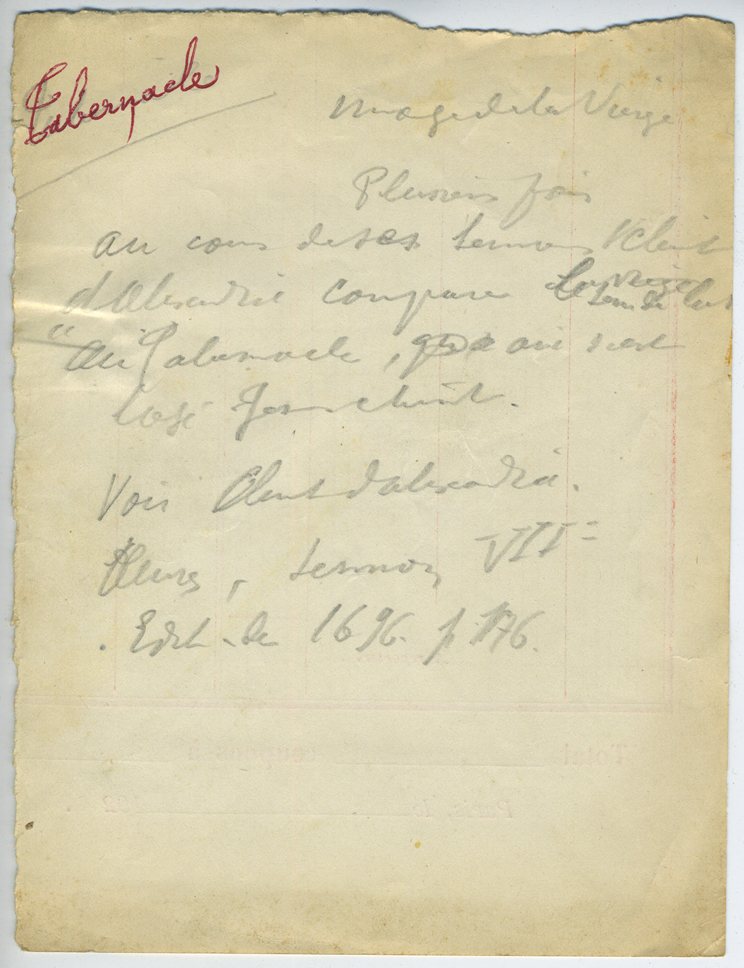 Tabernacle
Image de la Vierge
Plusieurs fois
au cours de ses sermons St Clément
d'Alexandrie compare la Vierge
au Tabernacle, où s'est
logé Jesus christ.
Voir Clément d'Alexandrie.
sermon VII=
. Edit. de 1696. p 176.
Total coupons à
Paris, le 192